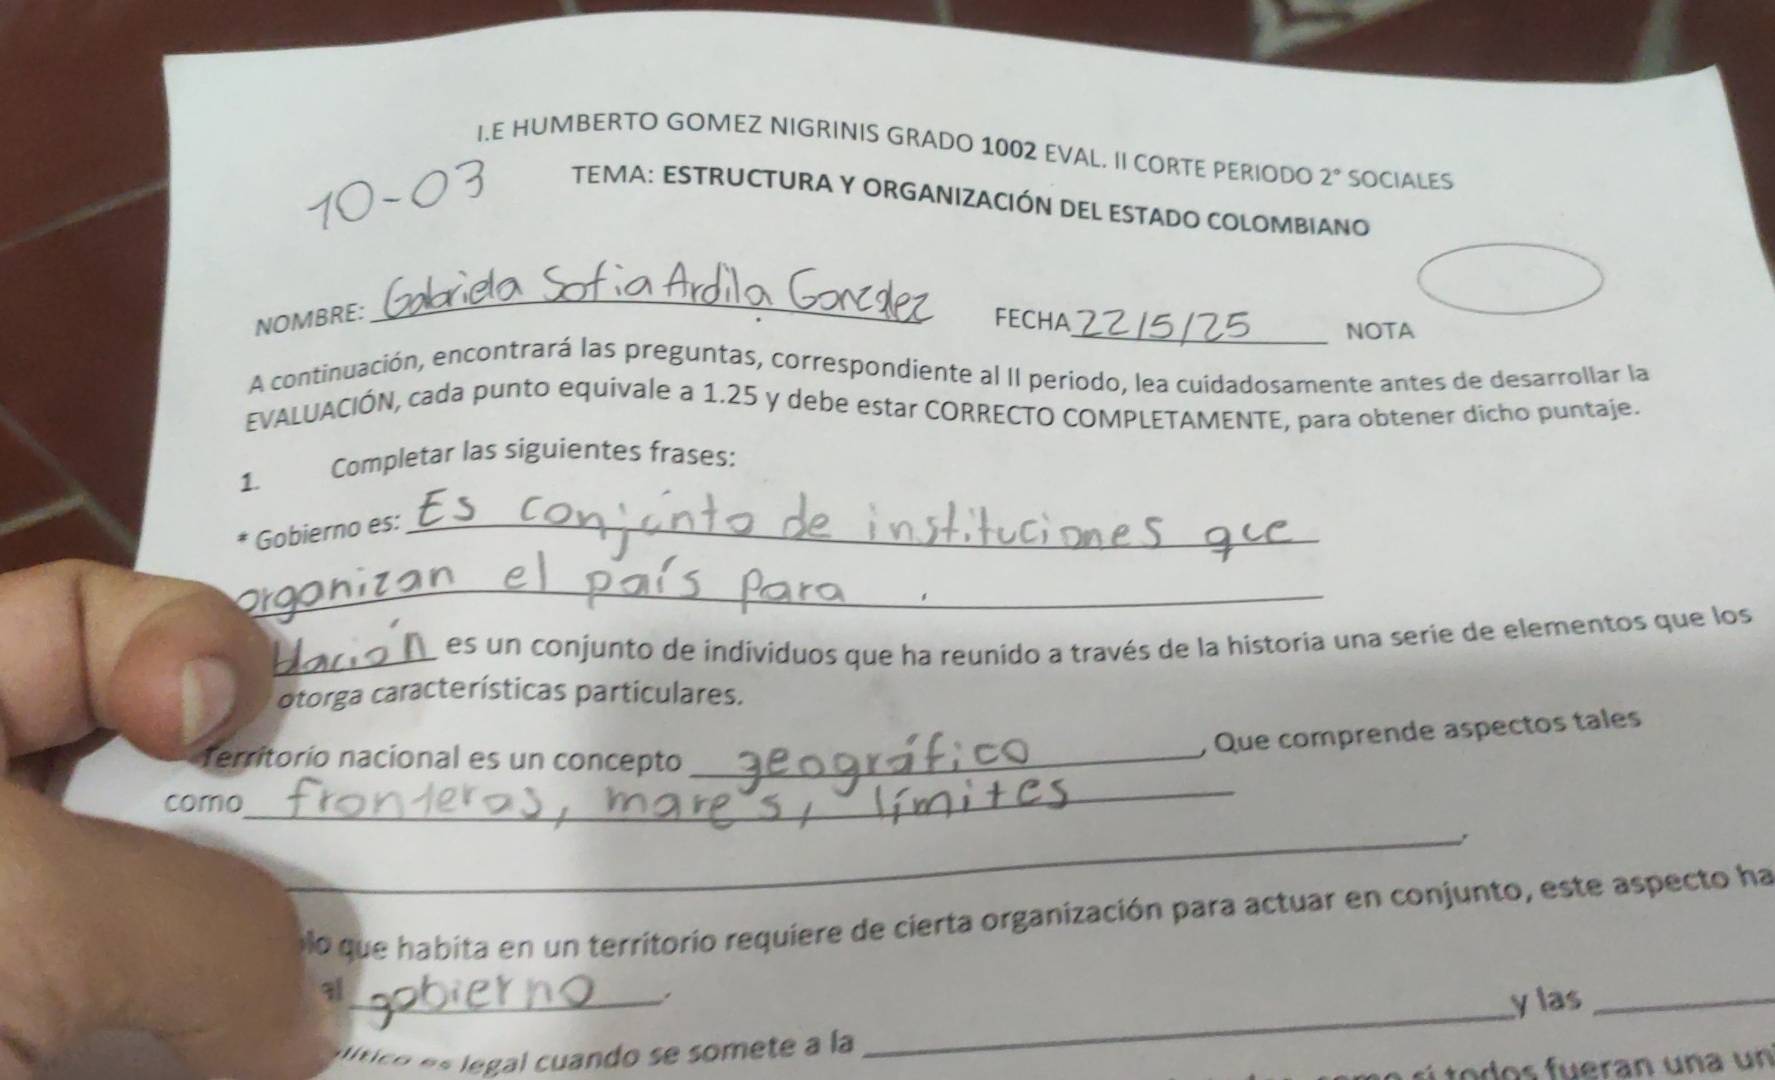 I.E HUMBERTO GOMEZ NIGRINIS GRADO 1002 EVAL. II CORTE PERIODO 2° SOCIALES
10-03
TEMA: ESTRUCTURA Y ORGANIZACIÓN DEL ESTADO COLOMBIANO
NOMBRE: Gabriela Sofia Ardila Gonzalez FECHA 22/5/25 NOTA
A continuación, encontrará las preguntas, correspondiente al II periodo, lea cuidadosamente antes de desarrollar la
EVALUACIÓN, cada punto equivale a 1.25 y debe estar CORRECTO COMPLETAMENTE, para obtener dicho puntaje.
1. Completar las siguientes frases:
* Gobierno es: Es conjunto de instituciones que
organizan el país para .
es un conjunto de individuos que ha reunido a través de la historia una serie de elementos que los
otorga características particulares.
Territorio nacional es un concepto geográfico, Que comprende aspectos tales
como fronteras, mares, límites
.
que habita en un territorio requiere de cierta organización para actuar en conjunto, este aspecto ha
al gobierno.
es legal cuando se somete a la y las
sí todos fueran una